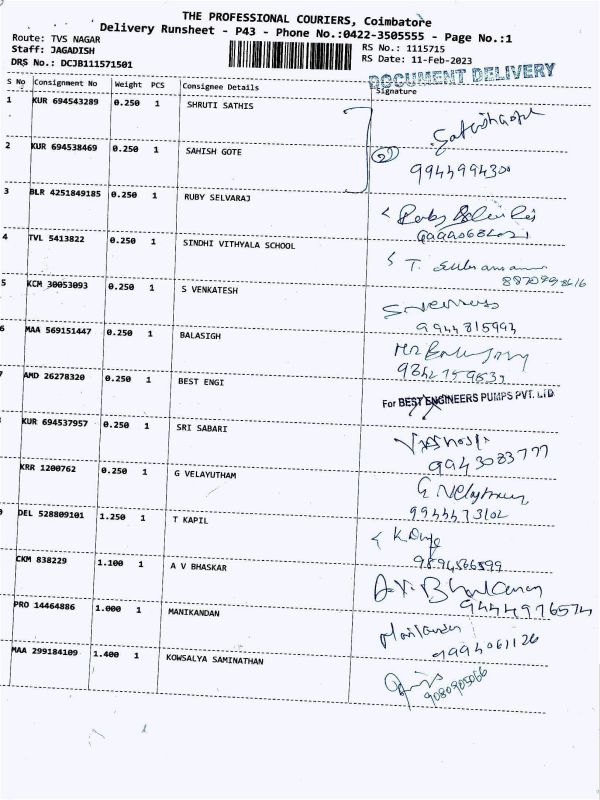 THE PROFESSIONAL COURIERS, Coimbatore
Delivery Runsheet - P43 - Phone No.:0422-3505555 - Page No.:1
Route: TVS NAGAR
Staff: JAGADISH
DRS No.: DCJB111571501
RS No.: 1115715
RS Date: 11-Feb-2023
DOCUMENT DELIVERY
S No Consignment No Weight PCS Consignee Details Signature
1 KUR 694543289 0.250 1 SHRUTI SATHIS
2 KUR 694538469 0.250 1 SAHISH GOTE (2) 9944994300
3 BLR 4251849185 0.250 1 RUBY SELVARAJ
4 TVL 5413822 0.250 1 SINDHI VITHYALA SCHOOL
5 KCM 30053093 0.250 1 S VENKATESH 9944815994
6 MAA 569151447 0.250 1 BALASIGH
AMD 26278320 0.250 1 BEST ENGI For BEST ENGINEERS PUMPS PVT. LTD
KUR 694537957 0.250 1 SRI SABARI 9943083777
KRR 1200762 0.250 1 G VELAYUTHAM
DEL 528809101 1.250 1 T KAPIL
9894566599
CKM 838229 1.100 1 A V BHASKAR A.V. Bhaskaran
9444976574
PRO 14464886 1.000 1 MANIKANDAN Manikandan
9994061126
MAA 299184109 1.400 1 KOWSALYA SAMINATHAN
9080905066